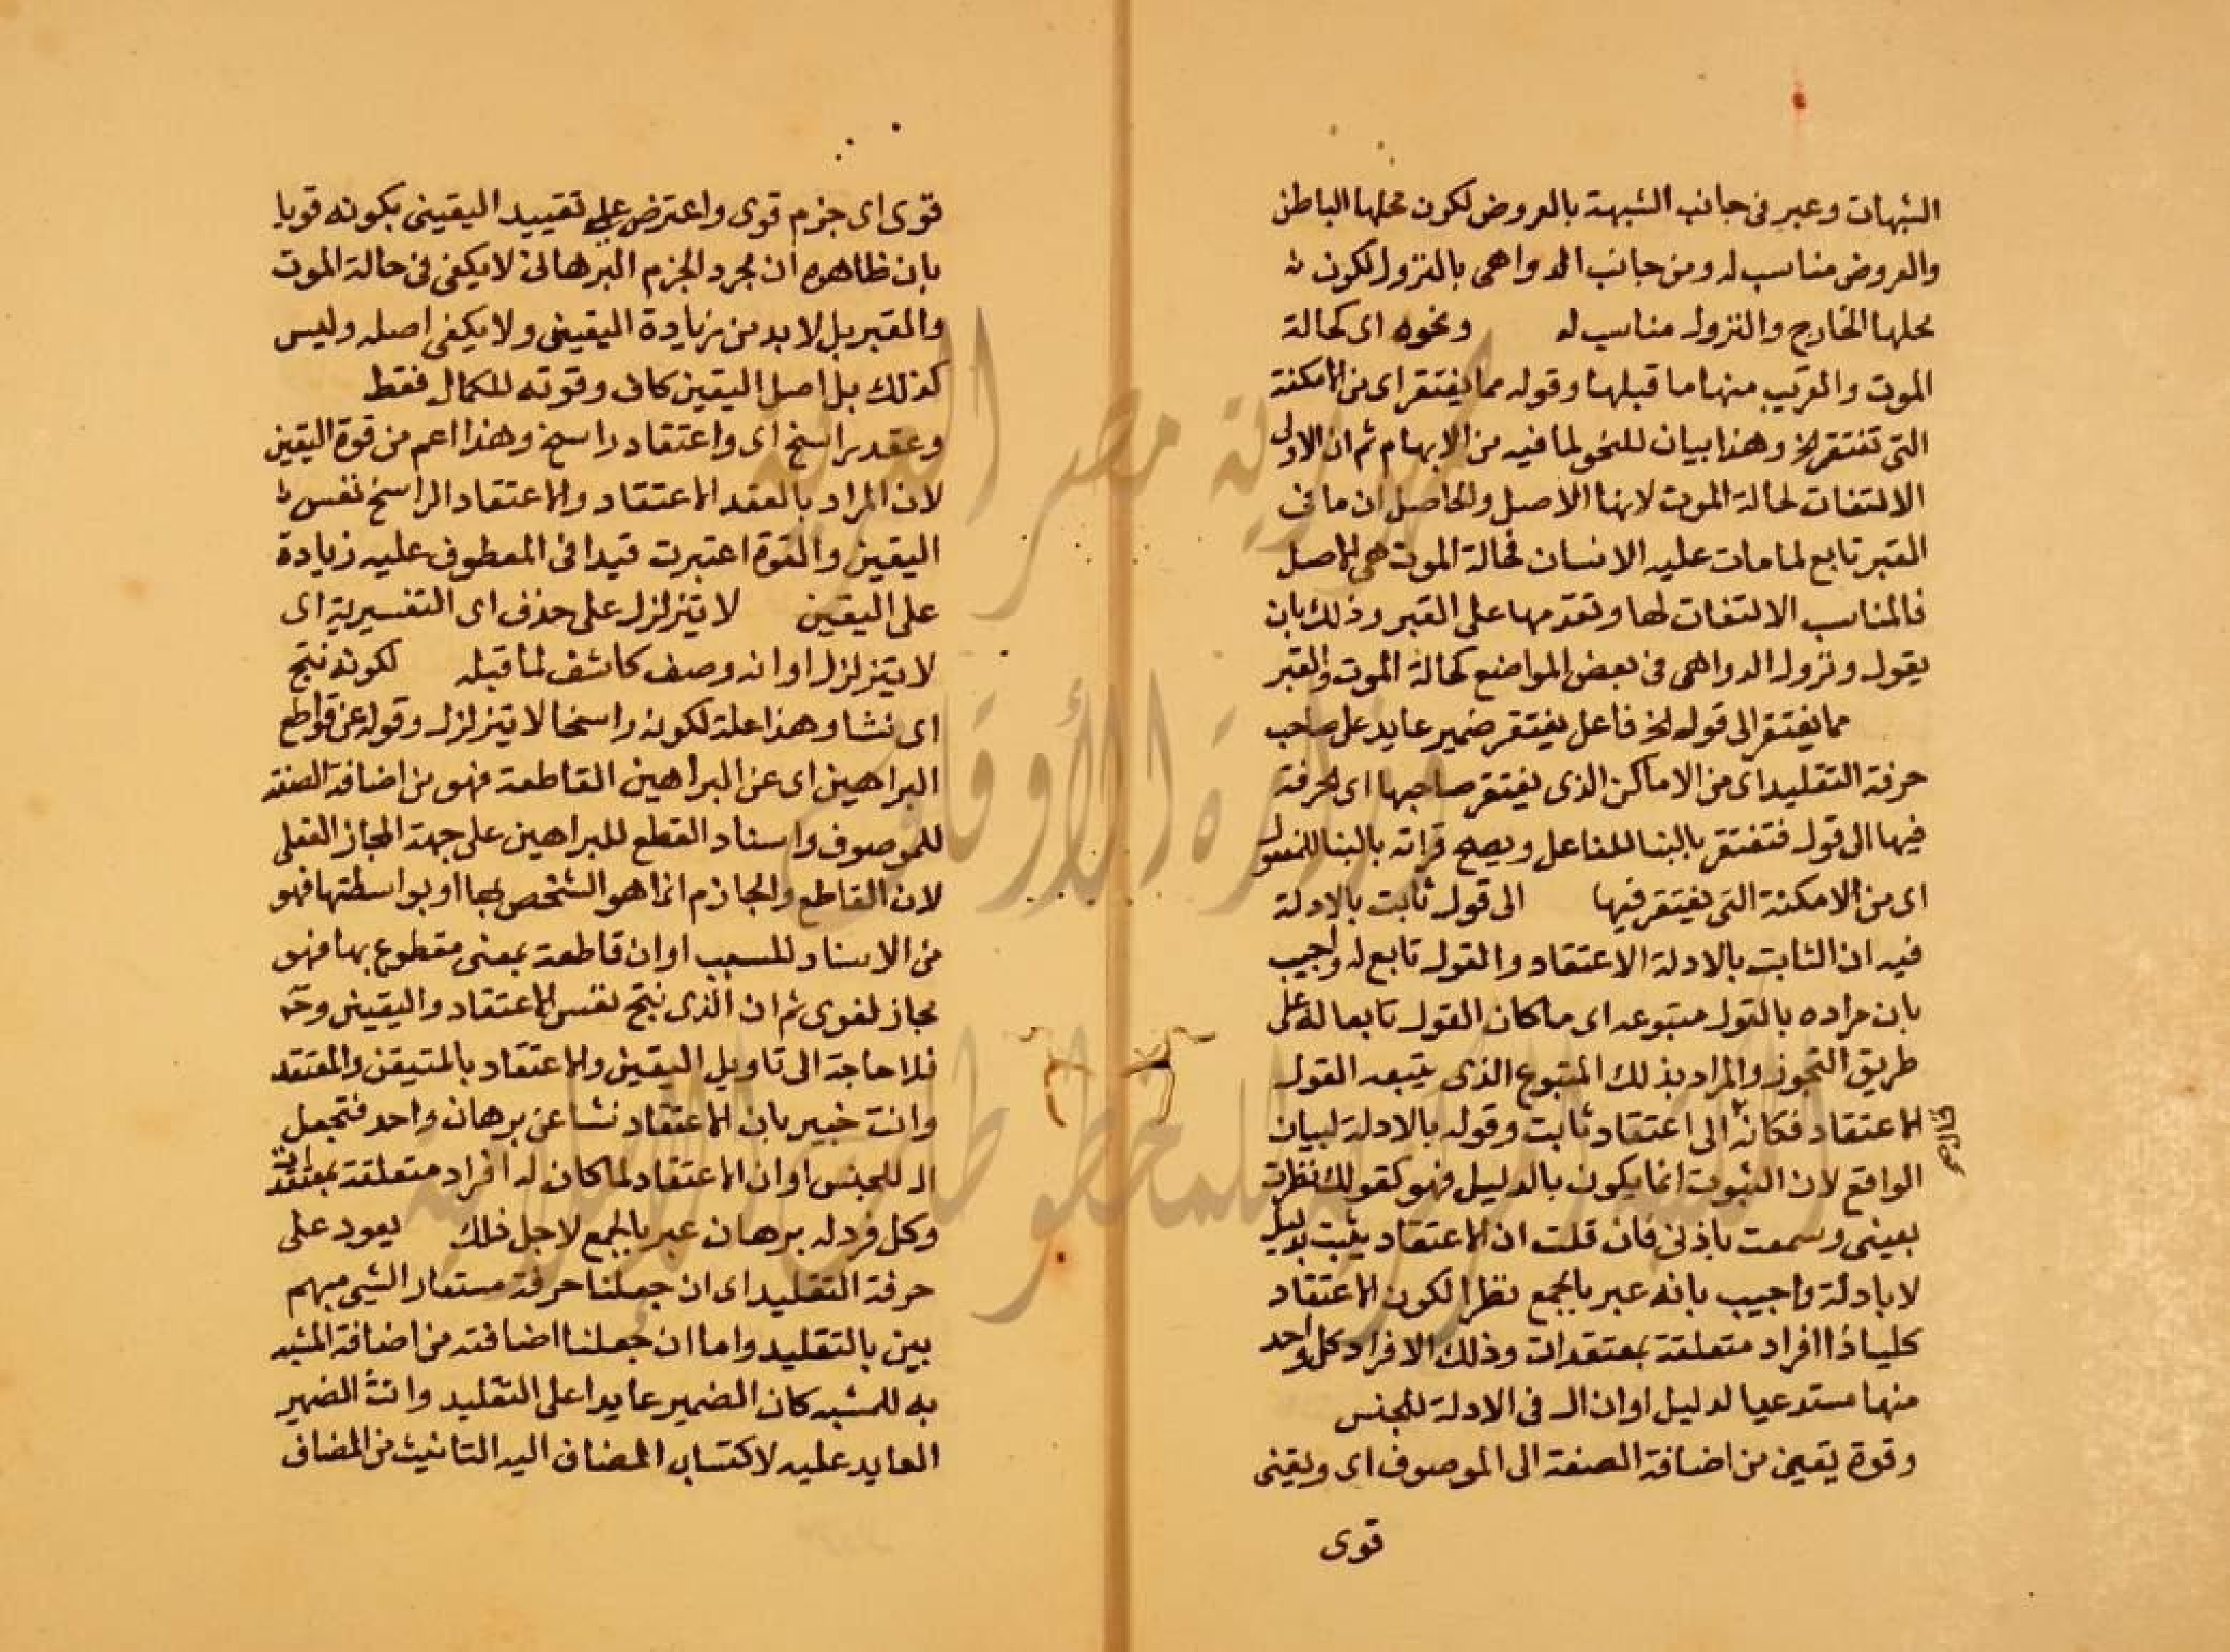 الشبهات وعبر فى جانب الشبهة بالعروض لكون محلها الباطن
والعروض مناسب له ومن جانب الدواهى بالنزول لكون
محلها الخارج والنزول مناسب له ونحوه اى كحالة
الموت والقريب منها ما قبلها وقوله مما يفتقر اى من الامكنة
التى تفتقر الخ وهذا بيان للنحو لما فيه من الابهام ثم ان الاولى
الالتفات لحالة الموت لانها الاصل والحاصل ان ما فى
القبر تابع لما مات عليه الانسان فحالة الموت هى الاصل
فالمناسب الالتفات لها وتقدمها على القبر وذلك بان
يقول ونزول الدواهى فى بعض المواضع كحالة الموت والقبر
مما يفتقر الى قوله الخ فاعل يفتقر ضمير عايد على صاحب
حرفة التقليد اى من الاماكن الذى يفتقر صاحبها اى الحرفة
فيها الى قول فتفتقر بالبنا للفاعل ويصح قراته بالبنا للمفعول
اى من الامكنة التى يفتقر فيها الى قول ثابت بالادلة
فيه ان الثابت بالادلة الاعتقاد والقول تابع له واجيب
بان مراده بالقول متبوعه اى ما كان القول تابعا له على
طريق التجوز والمراد بذلك المتبوع الذى يتبعه القول
الاعتقاد فكانه الى اعتقاد ثابت وقوله بالادلة لبيان
الواقع لان الثبوت انما يكون بالدليل فهو كقولك نظرت
بعينى وسمعت باذنى فان قلت ان الاعتقاد يثبت بدليل
لا بادلة واجيب بانه عبر بالجمع نظرا لكون الاعتقاد
كليا ذا افراد متعلقة بمعتقدات وذلك الافراد كل واحد
منها مستدعيا لدليل او ان ال فى الادلة للجنس
وقوة يقين من اضافة الصفة الى الموصوف اى ويقينى
قوى
قوى اى جزم قوى واعترض على تقييد اليقينى بكونه قويا
بان ظاهره ان مجرد الجزم البرهانى لا يكفى فى حالة الموت
والقبر بل لابد من زيادة اليقينى ولا يكفى اصله وليس
كذلك بل اصل اليقين كاف وقوته للكمال فقط
وعقد راسخ اى واعتقاد راسخ وهذا اعم من قوة اليقين
لان المراد بالعقد الاعتقاد والاعتقاد الراسخ نفس
اليقين والقوة اعتبرت قيدا فى المعطوف عليه زيادة
على اليقين لا يتزلزل على حذف اى التفسيرية اى
لا يتزلزل او انه وصف كاشف لما قبله لكونه نتج
اى نشا وهذا علة لكونه راسخا لا يتزلزل وقوله عن قواطع
البراهين اى عن البراهين القاطعة فهو من اضافة الصفة
للموصوف واسناد القطع للبراهين على جهة المجاز العقلى
لان القاطع والجازم انما هو الشخص بها او بواسطتها فهو
من الاسناد للسبب او ان قاطعة بمعنى مقطوع بها فهو
مجاز لغوى ثم ان الذى نتج نفس الاعتقاد واليقين وح
فلا حاجة الى تاويل اليقين والاعتقاد بالمتيقن والمعتقد
وانت خبير بان الاعتقاد نشا عن برهان واحد فتجعل
ال للجنس او ان الاعتقاد لما كان له افراد متعلقة بمعتقدات
وكل فرد له برهان عبر بالجمع لاجل ذلك يعود على
حرفة التقليد اى ان جعلنا حرفة مستعار الشيى مبهم
بين بالتقليد واما ان جعلنا اضافته من اضافة المشبه
به للمشبه كان الضمير عايدا على التقليد وانث الضمير
العايد عليه لاكتساب المضاف اليه التانيث من المضاف